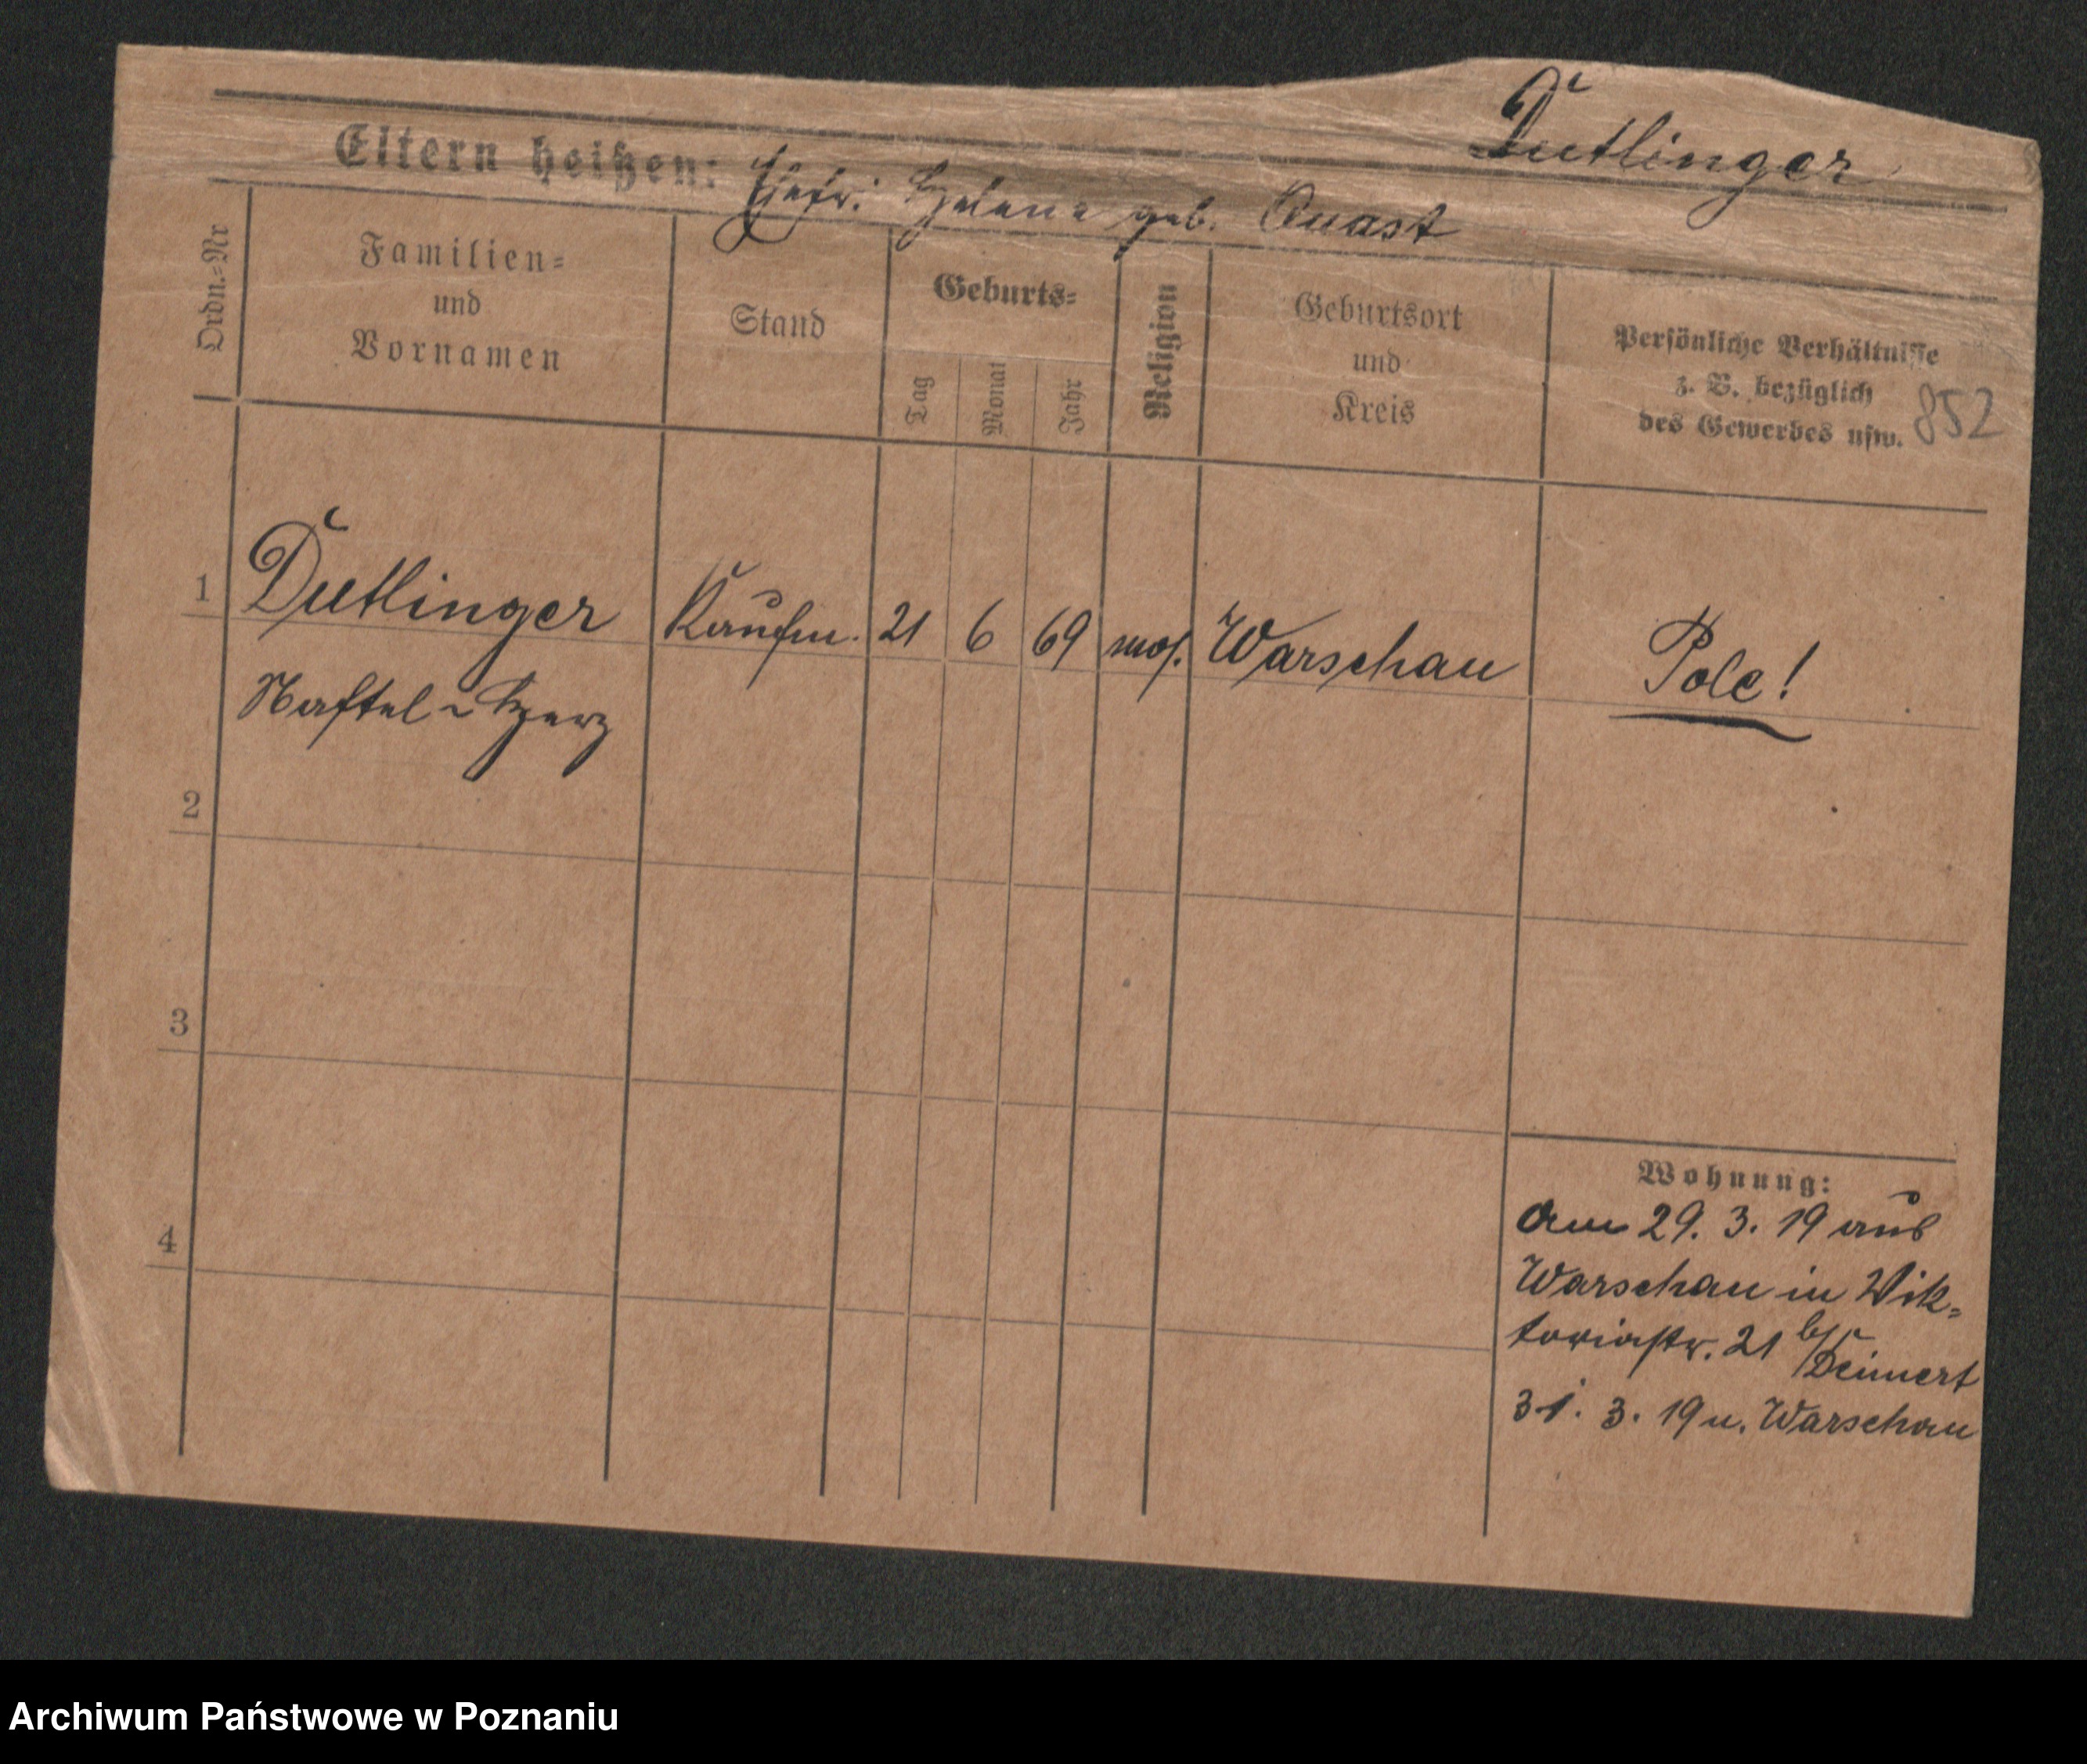 Dutlinger
Eltern heißen: Ehefr: Helene geb. Quast
Ordn.=Nr
Familien=
und
Vornamen
Stand
Geburts=
Tag
Monat
Jahr
Religion
Geburtsort
und
Kreis
Persönliche Verhältnisse
z. B. bezüglich
des Gewerbes usw.
852
1
Dutlinger Kaufm. 21 6 69 mos. Warschau Pole!
Naftel - Herz
2
3
4
Wohnung:
am 29. 3. 19 aus
Warschau in Vik=
toriastr. 21 b/ Deimert
31. 3. 19 n. Warschau
Archiwum Państwowe w Poznaniu